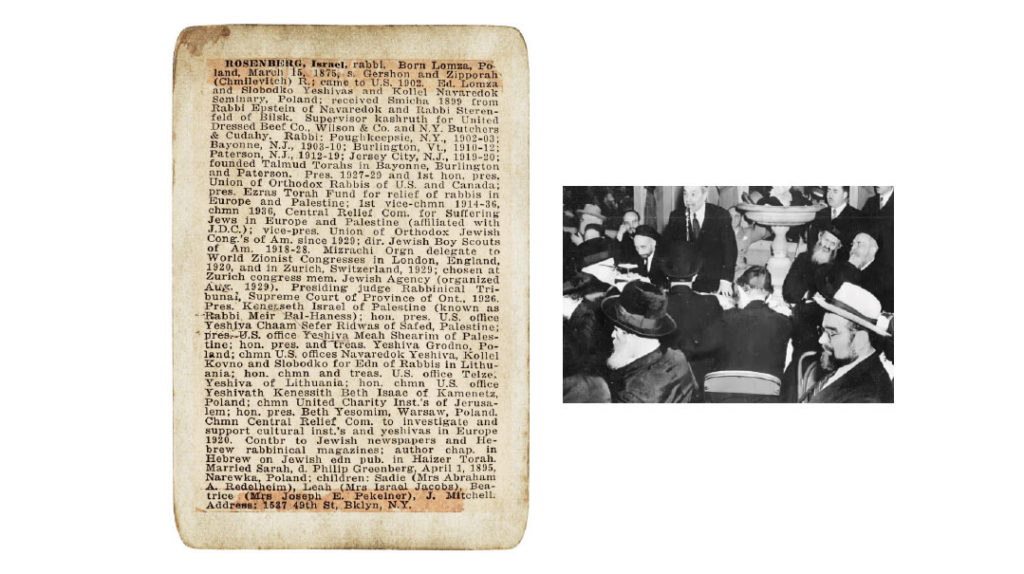 ROSENBERG, Israel, rabbi. Born Lomza, Po-
land, March 15, 1875, s. Gershon and Zipporah
(Chmilevitch) R.; came to U.S. 1902. Ed. Lomza
and Slobodko Yeshivas and Kollel Navaredok
Seminary, Poland; received Smicha 1899 from
Rabbi Epstein of Navaredok and Rabbi Steren-
feld of Bilsk. Supervisor kashruth for United
Dressed Beef Co., Wilson & Co. and N.Y. Butchers
& Cudahy. Rabbi: Poughkeepsie, N.Y., 1902-03;
Bayonne, N.J., 1903-10; Burlington, Vt., 1910-12;
Paterson, N.J., 1912-19; Jersey City, N.J., 1919-20;
founded Talmud Torahs in Bayonne, Burlington
and Paterson. Pres. 1927-29 and 1st hon. pres.
Union of Orthodox Rabbis of U.S. and Canada;
pres. Ezras Torah Fund for relief of rabbis in
Europe and Palestine; 1st vice-chmn 1914-36,
chmn 1936, Central Relief Com. for Suffering
Jews in Europe and Palestine (affiliated with
J.D.C.); vice-pres. Union of Orthodox Jewish
Cong.'s of Am. since 1929; dir. Jewish Boy Scouts
of Am. 1918-28. Mizrachi Orgn delegate to
World Zionist Congresses in London, England,
1920, and in Zurich, Switzerland, 1929; chosen at
Zurich congress mem. Jewish Agency (organized
Aug. 1929). Presiding judge Rabbinical Tri-
bunai, Supreme Court of Province of Ont., 1926.
Pres. Kenesseth Israel of Palestine (known as
Rabbi Meir Bal-Haness); hon. pres. U.S. office
Yeshiva Chaam Sefer Ridwas of Safed, Palestine;
pres. U.S. office Yeshiva Meah Shearim of Pales-
tine; hon. pres. and treas. Yeshiva Grodno, Po-
land; chmn U.S. offices Navaredok Yeshiva, Kollel
Kovno and Slobodko for Edn of Rabbis in Lithu-
ania; hon. chmn and treas. U.S. office Telze,
Yeshiva of Lithuania; hon. chmn U.S. office
Yeshivath Kenessith Beth Isaac of Kamenetz,
Poland; chmn United Charity Inst.'s of Jerusa-
lem; hon. pres. Beth Yesomim, Warsaw, Poland.
Chmn Central Relief Com. to investigate and
support cultural inst.'s and yeshivas in Europe
1920. Contbr to Jewish newspapers and He-
brew rabbinical magazines; author chap. in
Hebrew on Jewish edn pub. in Haizer Torah.
Married Sarah, d. Philip Greenberg, April 1, 1895,
Narewka, Poland; children: Sadie (Mrs Abraham
A. Redelheim), Leah (Mrs Israel Jacobs), Bea-
trice (Mrs Joseph E. Pekelner), J. Mitchell.
Address: 1537 49th St, Bklyn, N.Y.